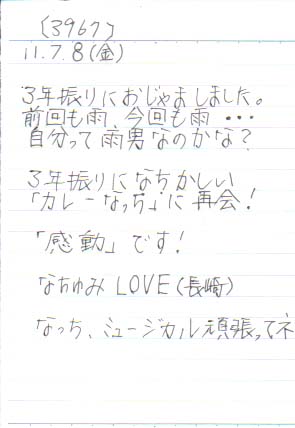 (3967)
11.7.8(金)
3年振りにおじゃましました。
前回も雨、今回も雨・・・
自分って雨男なのかな?
3年振りになちかしい
「カレーなっち」に再会!
「感動」です!
なちゅみLOVE(長崎)
なっち、ミュージカル頑張ってネ